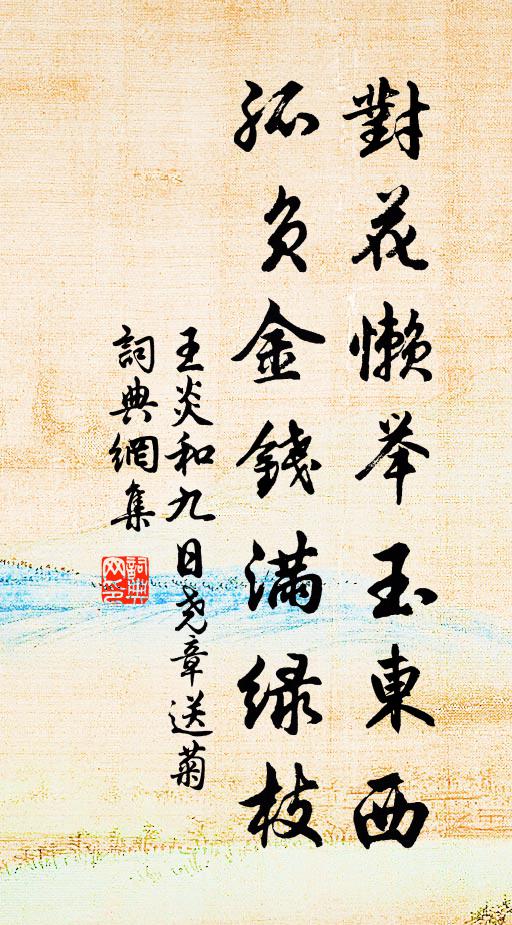 對花懶举玉東西
孤负金錢滿绿枝
王炎和九日尧章送菊
詞典網集
詞典网印